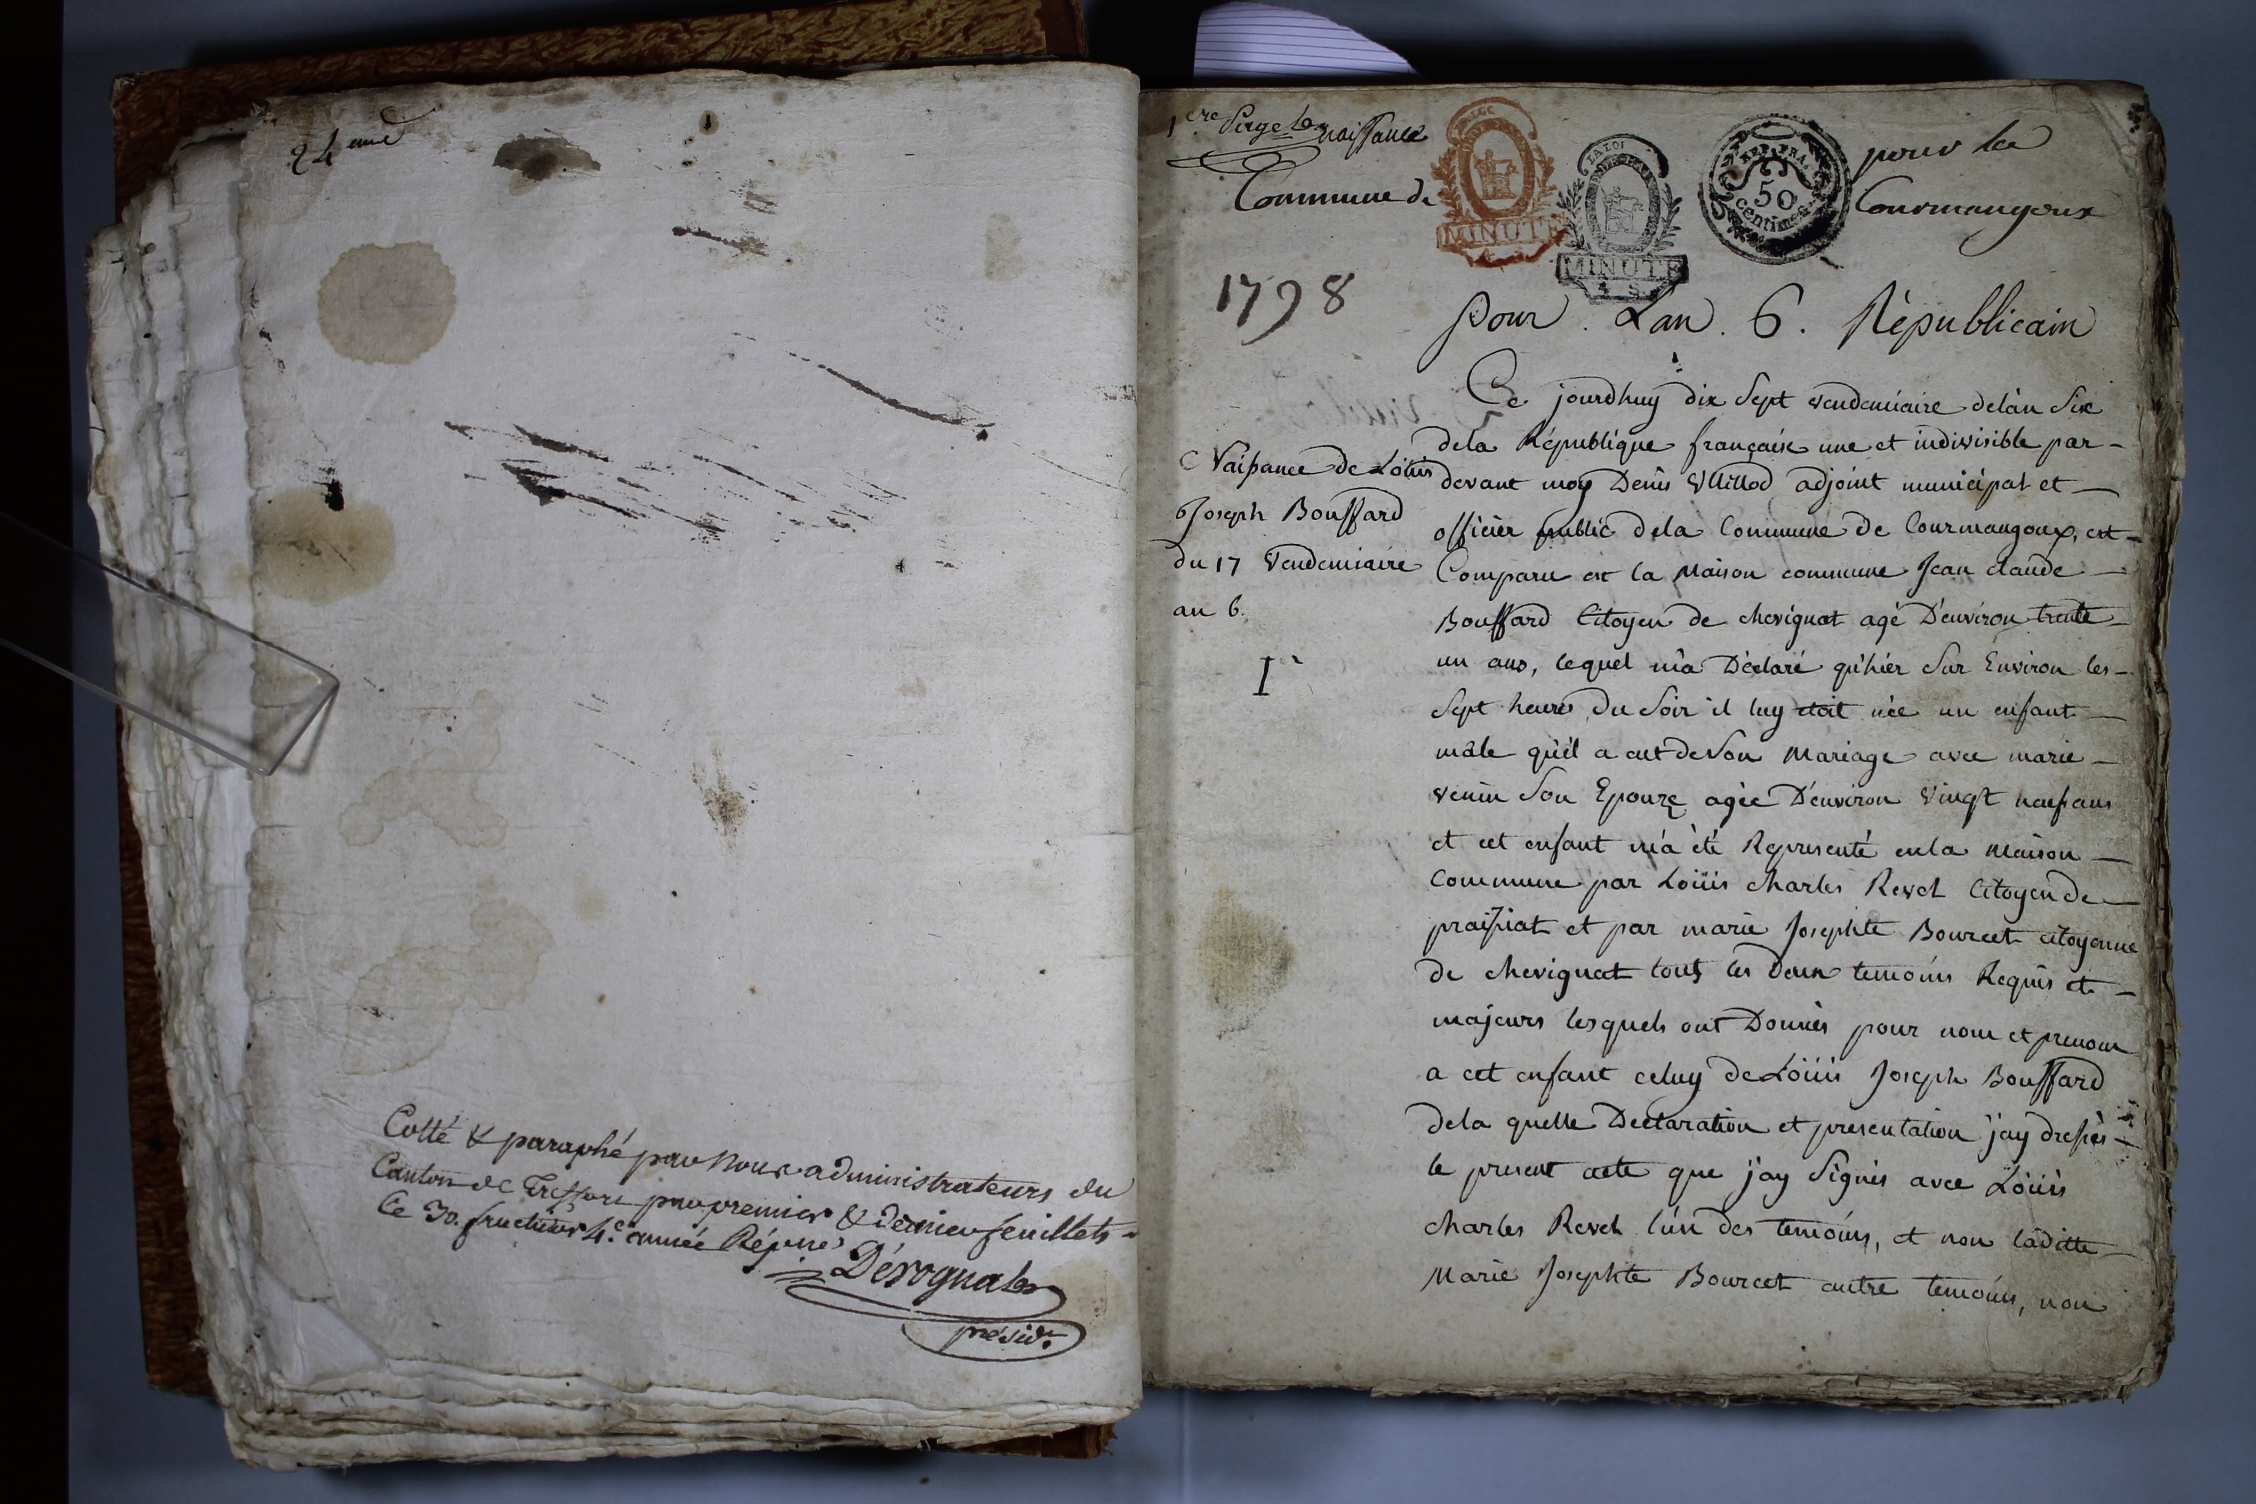 24eme
Cotté & paraphé par Nous administrateurs du
Canton de Treffort par premier & dernier feuillets
Ce 30. fructidor 4.e année Répne
Dérognat
présidt
1ere Page naissance pour la
Commune de Courmangoux
LA LOI
MINUTE
LA LOI
MINUTE
4 S
REP. FRA.
50
centimes
1798
Pour Lan 6. Républicain
Naissance de Loüis
Joseph Bouffard
du 17 Vendemiaire
an 6.
1
Ce jourdhuy dix Sept vendemiaire delàn Six
dela Républiqe française une et indivisible par-
devant moy Denis adjoint municipal et
officier public dela Commune de Courmangoux, est
Comparu en la Maison commune Jean claude
Bouffard Citoyen de chevignat agé D'environ trente
un ans, lequel m'a Déclaré qu'hier Sur Environ les
Sept heures Du Soir il luy étoit née un enfant
mâle qu'il a eut de Son Mariage avec marie
venin Son Epouze agée D'environ Vingt neuf ans
et cet enfant m'a èté Representé en la maison
Commune par Loüis charles Revel Citoyen de
praissiat et par marie Josephte Bourcet citoyenne
de chevignat tous les deux temoins Requis et
majeurs lesquels ont Donnés pour nom et prenom
a cet enfant celuy de Loüis Joseph Bouffard
dela quelle Declaration et presentation j'ay dressés
le present acte que j'ay Signés avec Loüis
charles Revel l'un des temoins, et non laditte
Marie Josephte Bourcet autre temoins, non